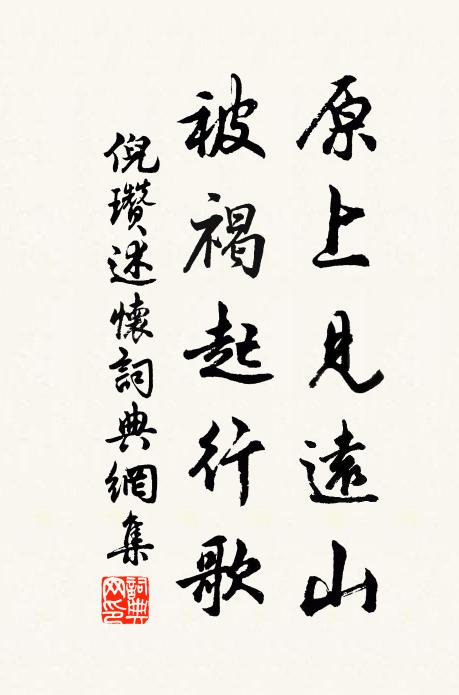 原上見遠山
被褐起行歌
倪瓚述懷詞典網集
詞典
网印